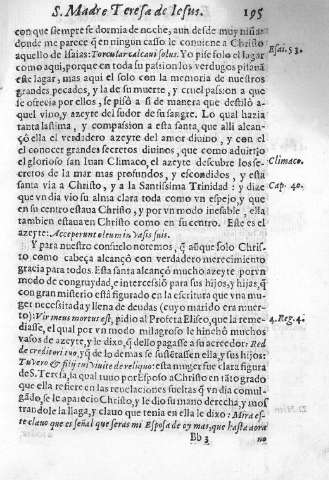 S. Madre Teresa de Iesus. 195
con que siempre se dormia de noche, aun desde muy niña:
donde me parece q̃ en ningun caso le conuiene a Christo
aquello de Isaias: Torcular calcaui solus. Yo pise solo el lagar
como aqui, porque en toda su passion los verdugos pisauã
este lagar; mas aqui el solo con la memoria de nuestros
grandes pecados, y la de su muerte, y cruel passion a que
se ofrecia por ellos, se pisò a si de manera que destilò a-
quel vino, y azeyte del sudor de su sangre. Lo qual hazia
tanta lastima, y compassion a esta santa, que alli alcan-
çò ella el verdadero azeyte del amor diuino, y con el
el conocer grandes secretos diuinos, que como aduirtio
el glorioso san Iuan Climaco, el azeyte descubre los se-
cretos de la mar mas profundos, y escondidos, y esta
santa via a Christo, y a la Santissima Trinidad: y dize
que vn dia vio su alma clara toda como vn espejo, y que
en su centro estaua Christo, y por vn modo inefable, ella
tambien estaua en Christo como en su centro. Este es el
azeyte: Acceperunt oleum in vasis suis.
Y para nuestro consuelo noremos, q̃ aũque solo Chris-
to como cabeça alcançò con verdadero merecimiento
gracia para todos. Esta santa alcançò mucho azeyte por vn
modo de congruydad, e intercessiõ para sus hijos, y hijas, q̃
con gran misterio està figurado en la escritura que vna mu-
ger necessitada y llena de deudas (cuyo marido era muer-
to): Vir meus mortuus est, pidio al Profeta Eliseo, que la reme-
diasse, el qual por vn modo milagroso le hinchò muchos
vasos de azeyte, y le dixo, q̃ dello pagasse a su acreedor: Red
de creditori tuo, y q̃ de lo demas se sustẽtassen ella, y sus hijos:
Tu vero & filij tui viuite de reliquo: esta muger fue clara figura
de S. Teresa, la qual tuuo por Esposo a Christo en tãto grado
que ella refiere en las reuelaciones sueltas q̃ vn dia comul-
gãdo, se le aparecio Christo, y le dio su mano derecha, y mos
trandole la llaga, y clauo que tenia en ella le dixo: Mira es-
te clauo que es señal que seras mi Esposa de oy mas, que hasta aora
Bb 3 no
Esai. 53.
Climaco.
Cap. 40.
4. Reg. 4.